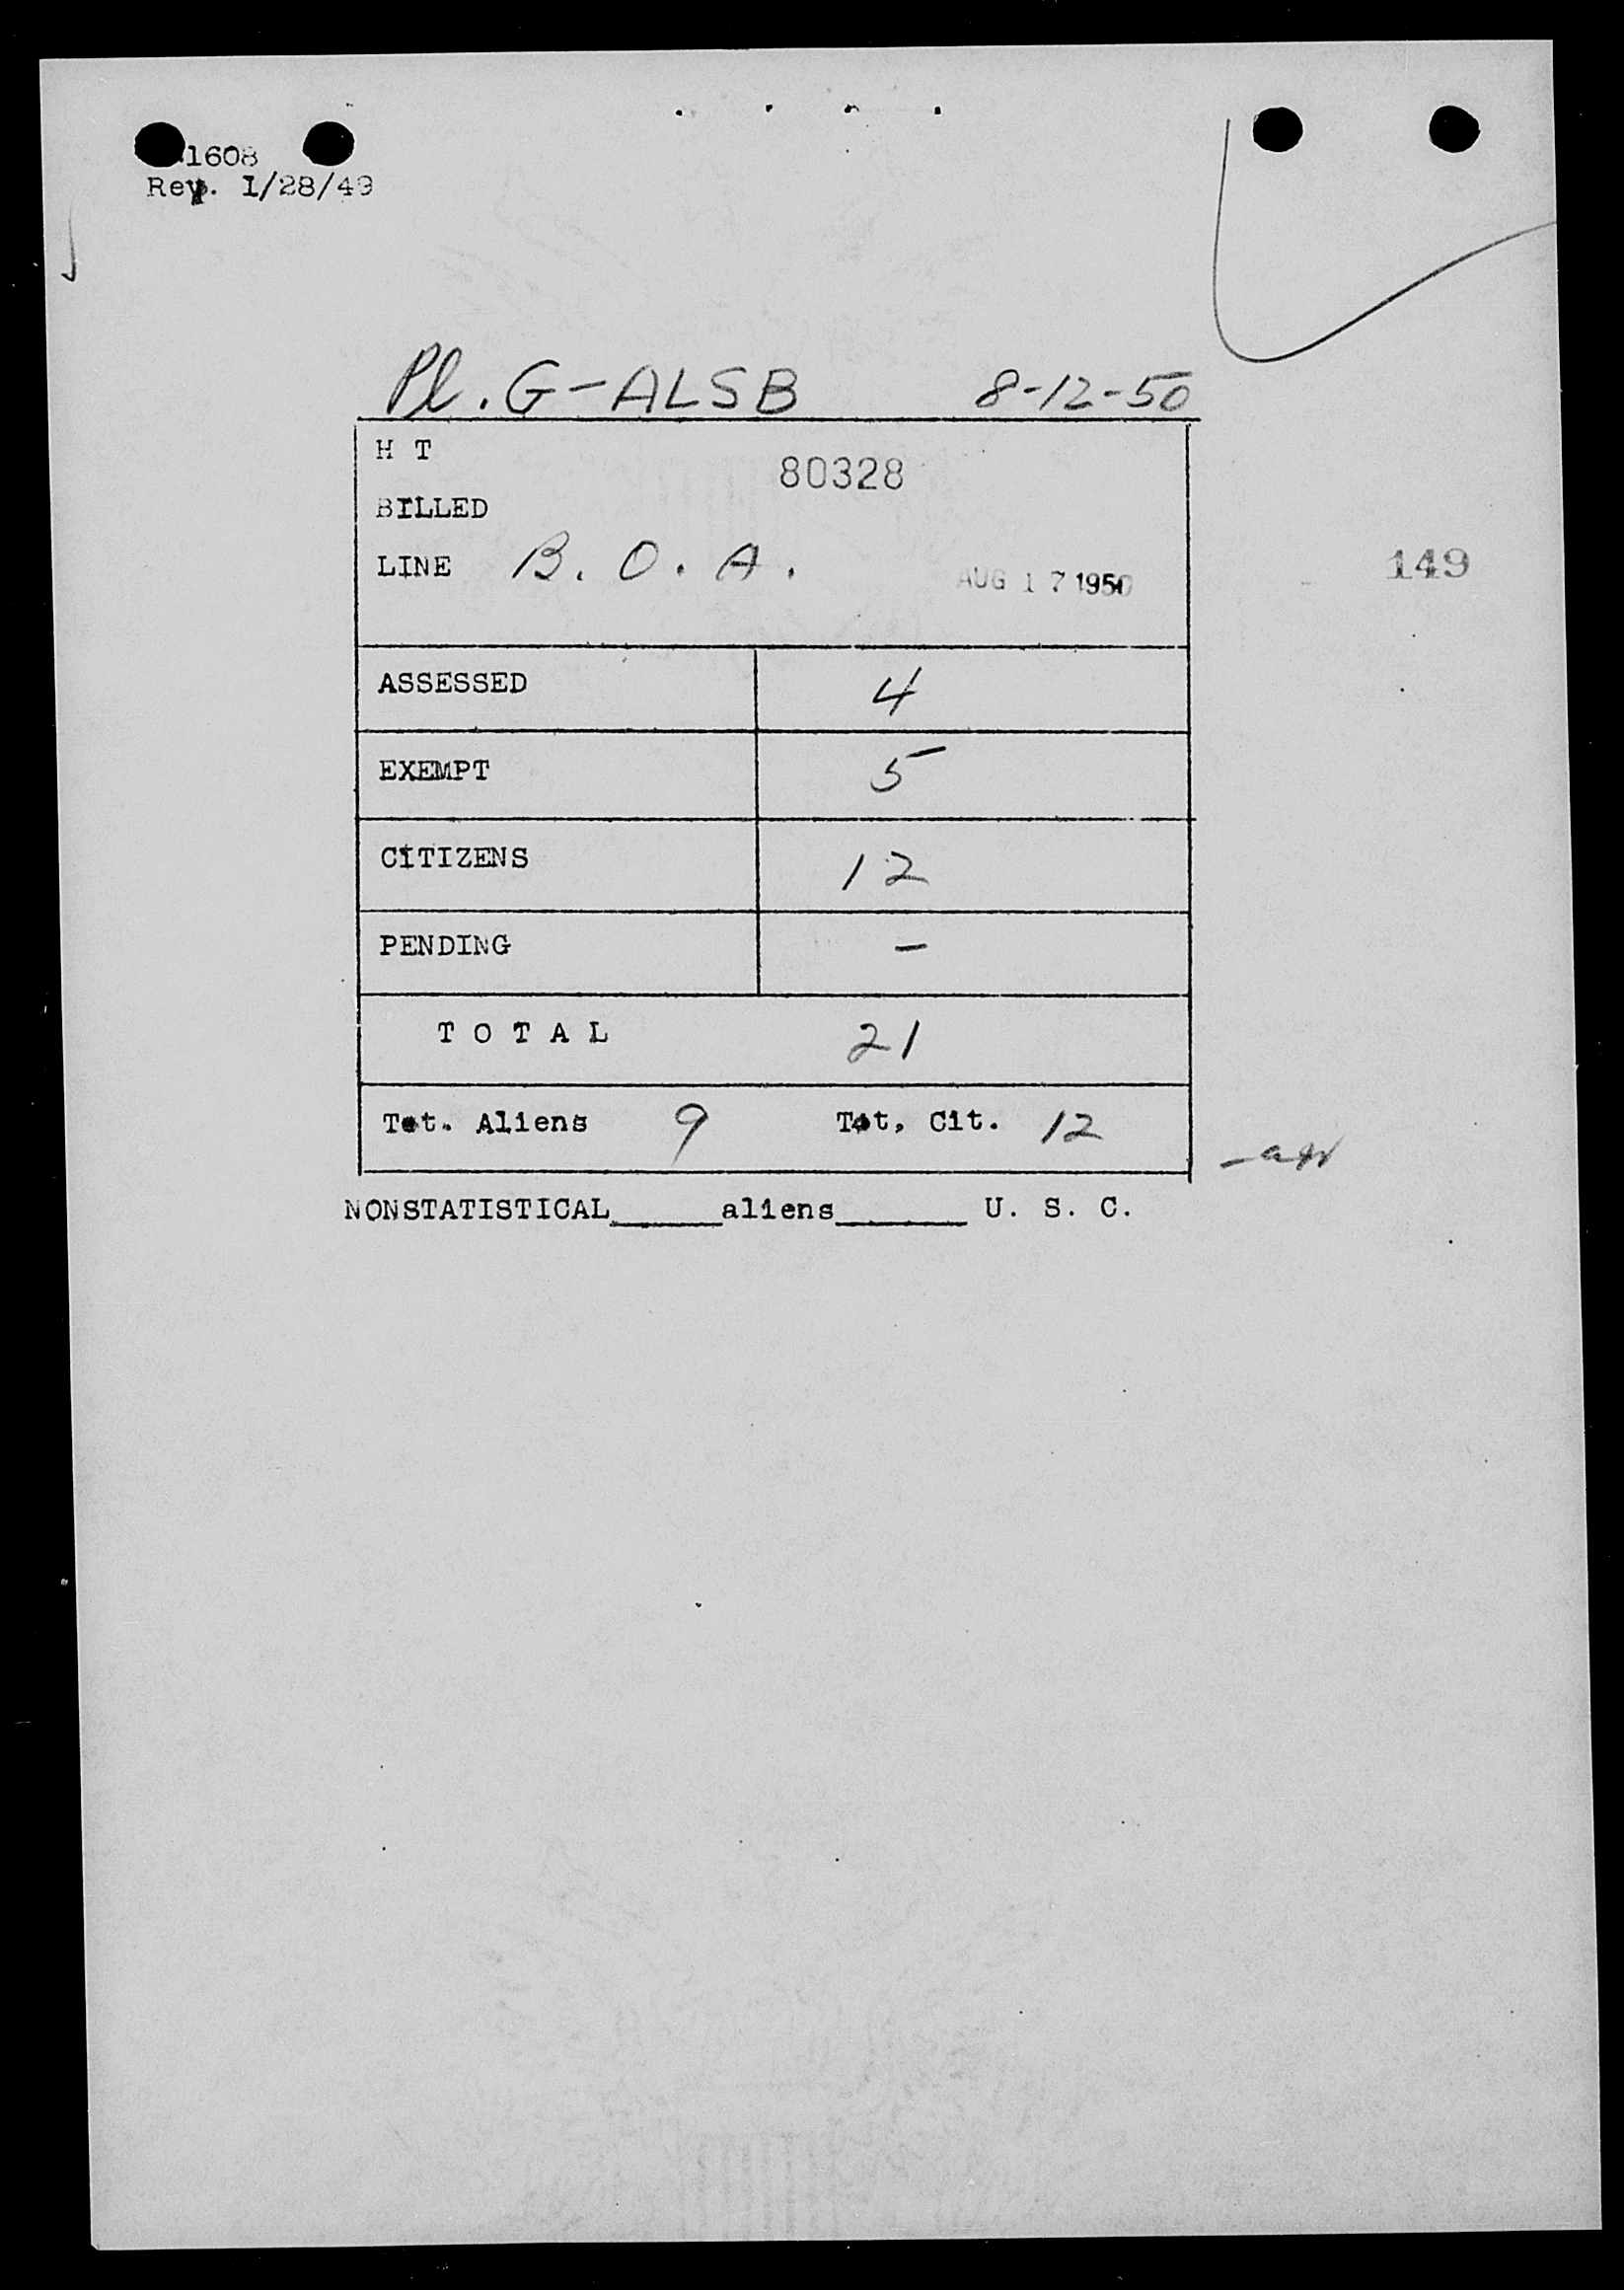 1608
Rev. 1/28/49
Pl. G-ALSB 8-12-50
H T
80328
BILLED
LINE B. O. A.
AUG 17 1950
149
ASSESSED 4
EXEMPT 5
CITIZENS 12
PENDING -
T O T A L 21
Tot. Aliens 9 Tot. Cit. 12
NONSTATISTICAL______aliens_______ U. S. C.